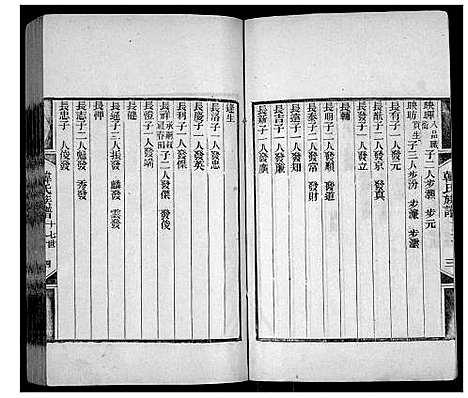 韓氏族譜
三
映璍 八品職銜 子二人 步瀛 步元
映昉 貢生 子三人 步汾 步瀍 步瀠
長有子一人發元
長酞子二人發京 發真
長發子一人發立
長轎
長明子二人發順 發道
長泰子二人發富 發財
長遠子一人發知
長吉子一人發廉
長歸子一人發廣
達生
長洛子一人發忠
長慶子一人發英
長利子一人發傑
長祥 子二人發傑 發俊
長證子一人發靖
長健
長通子三人振發 麟發 雲發
長押
長志子二人魁發 秀發
長忠子一人俊發
韓氏族譜
十七世
四